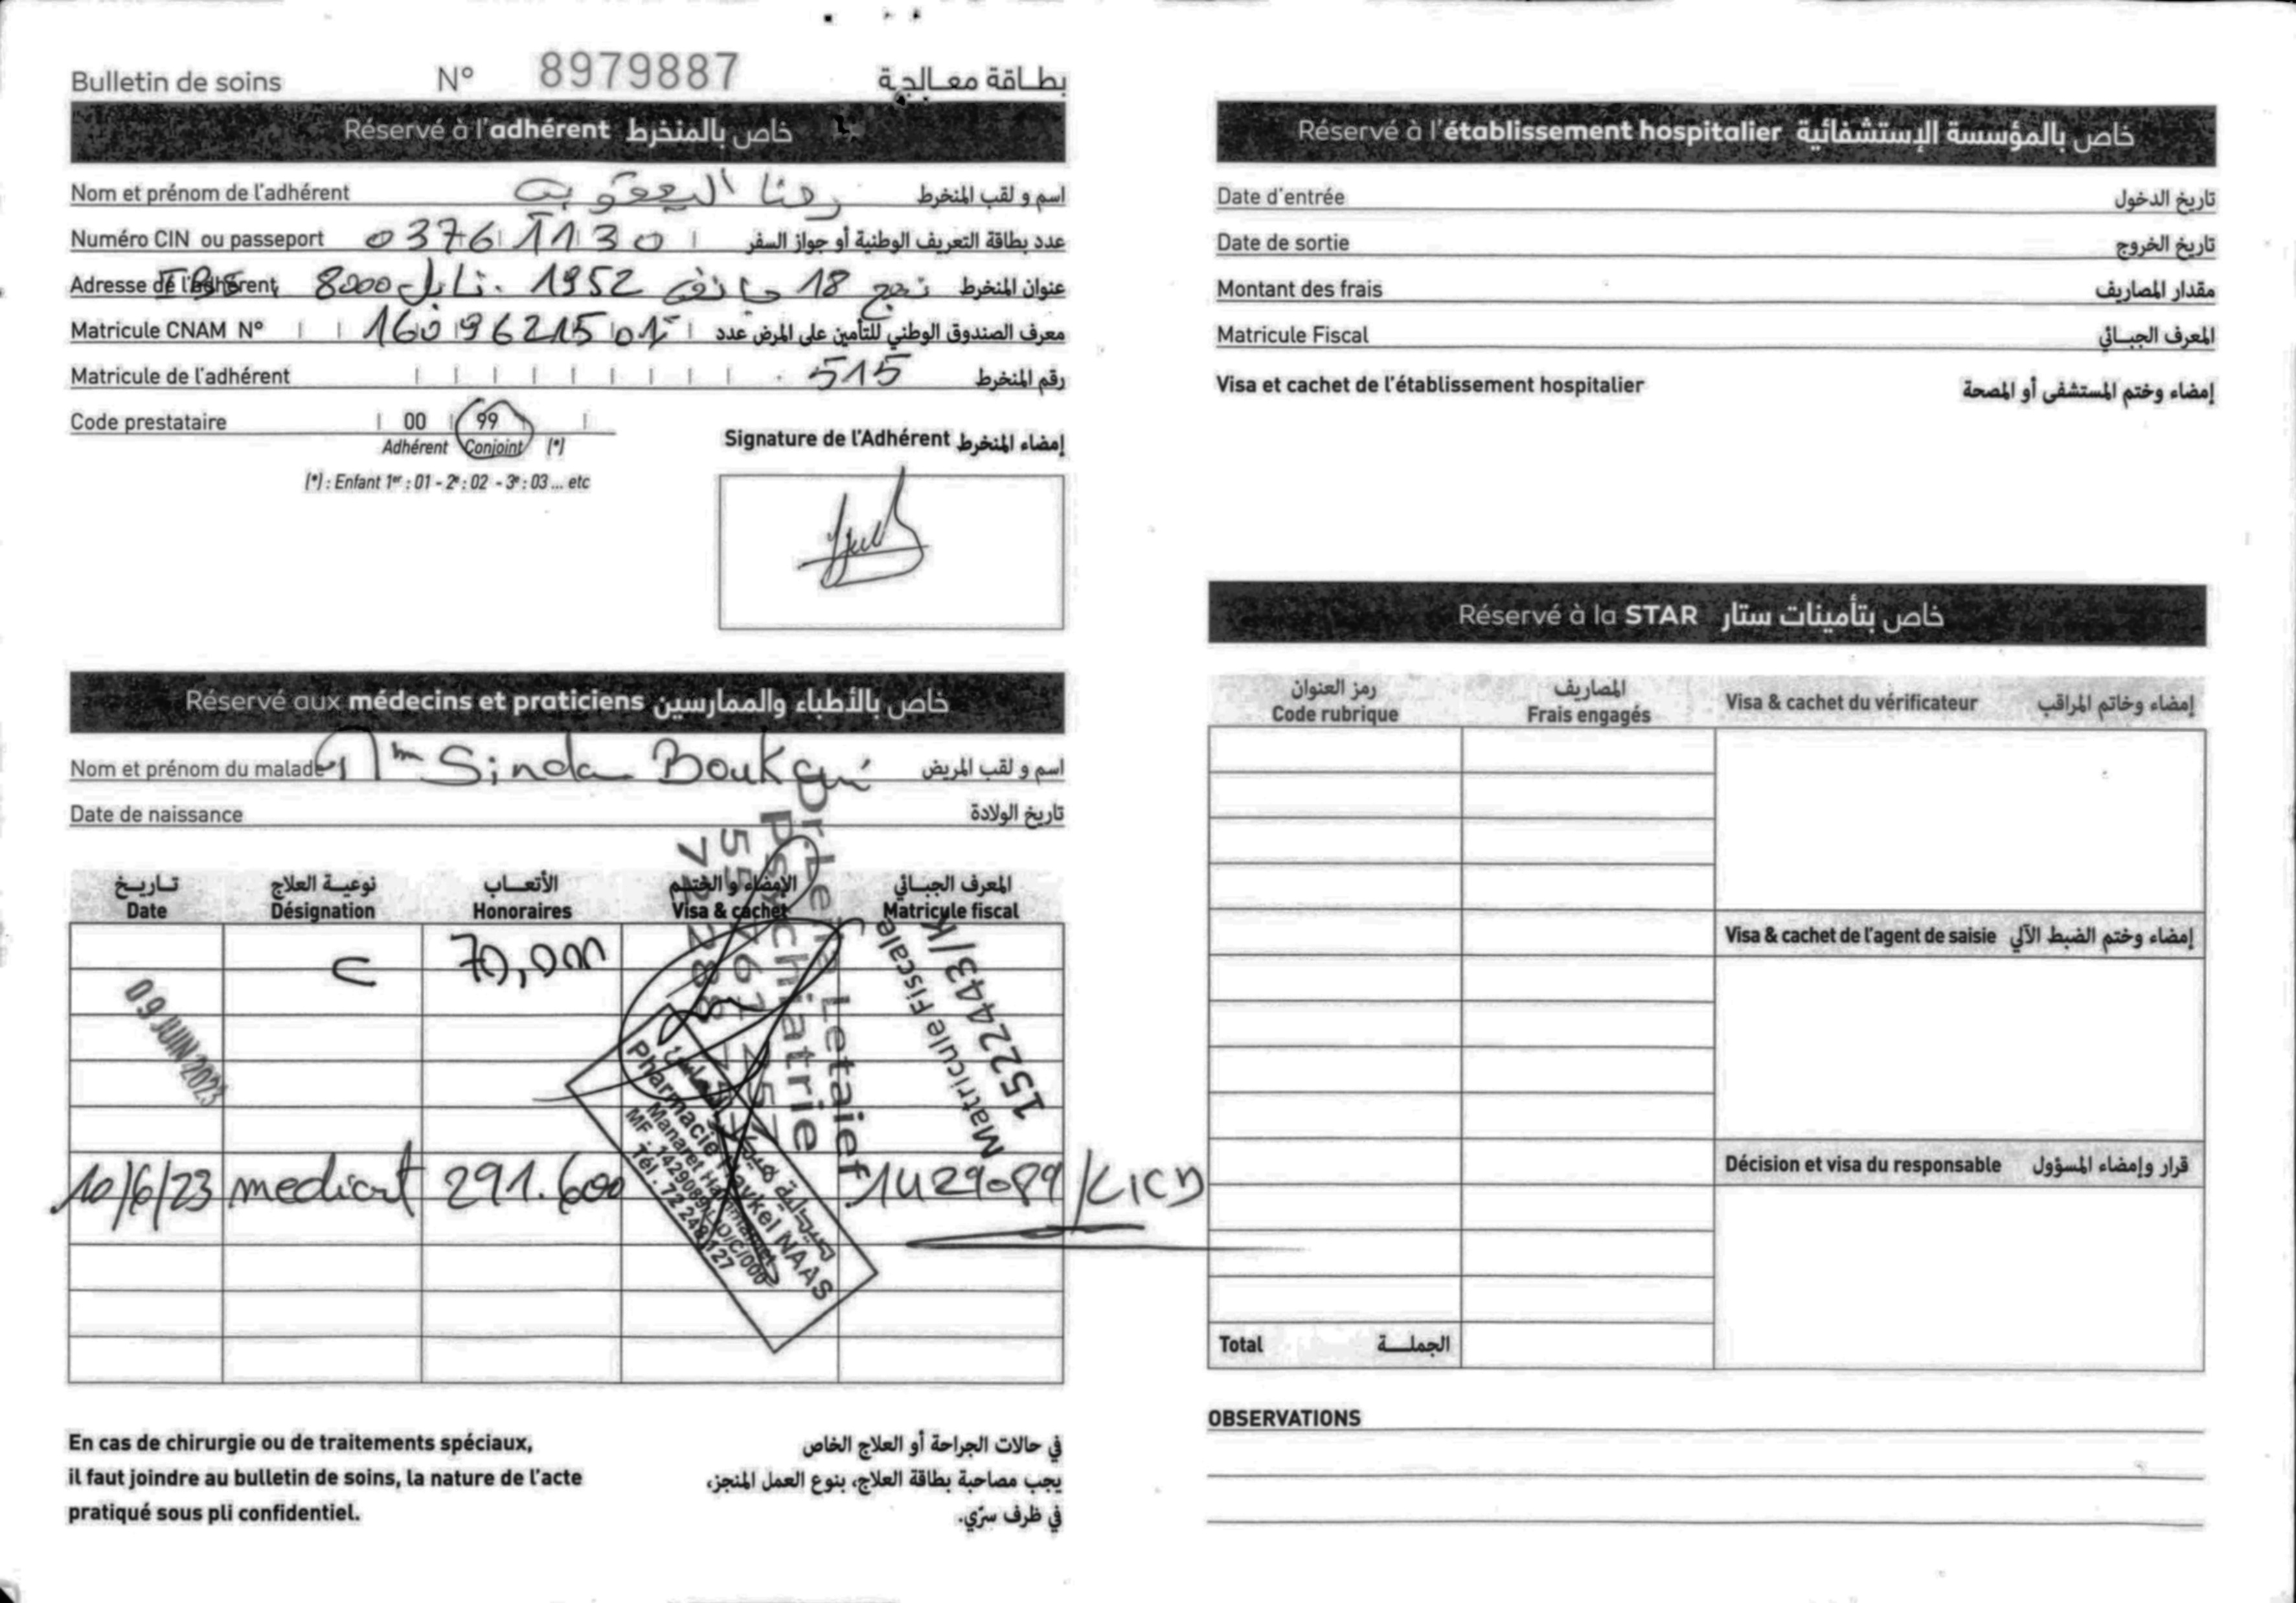 Bulletin de soins N° 8979887 بطاقة معالجة
Réservé à l'adhérent خاص بالمنخرط
Nom et prénom de l'adhérent رضا اليعقوبي اسم و لقب المنخرط
Numéro CIN ou passeport 03761130 عدد بطاقة التعريف الوطنية أو جواز السفر
Adresse de l'adhérent نهج 18 جانفي 1952 . نابل 8000 عنوان المنخرط
Matricule CNAM N° 1609621501 معرف الصندوق الوطني للتأمين على المرض عدد
Matricule de l'adhérent 515 رقم المنخرط
Code prestataire 00 99
Adhérent Conjoint (*)
(*) : Enfant 1er : 01 - 2e : 02 - 3e : 03 ... etc
Signature de l'Adhérent إمضاء المنخرط
Réservé aux médecins et praticiens خاص بالأطباء والممارسين
Nom et prénom du malade Mme Sinda اسم و لقب المريض
Date de naissance تاريخ الولادة
تـاريـخ نوعيـة العلاج الأتعـاب الإمضاء و الختـم المعرف الجبـائي
Date Désignation Honoraires Visa & cachet Matricule fiscal
09 JUIN 2023 C 70,000
Dr. Lena Letaief
Psychiatrie
Matricule Fiscale
1522443/K
10/6/23 medicat 291.600 1429089
Pharmacie Haykel NAAS
Manaret Hammamet
Tél. 72 249 127
En cas de chirurgie ou de traitements spéciaux,
il faut joindre au bulletin de soins, la nature de l'acte
pratiqué sous pli confidentiel.
في حالات الجراحة أو العلاج الخاص
يجب مصاحبة بطاقة العلاج، بنوع العمل المنجز،
في ظرف سرّي.
Réservé à l'établissement hospitalier خاص بالمؤسسة الإستشفائية
Date d'entrée تاريخ الدخول
Date de sortie تاريخ الخروج
Montant des frais مقدار المصاريف
Matricule Fiscal المعرف الجبـائي
Visa et cachet de l'établissement hospitalier إمضاء وختم المستشفى أو المصحة
Réservé à la STAR خاص بتأمينات ستار
رمز العنوان المصاريف
Code rubrique Frais engagés Visa & cachet du vérificateur إمضاء وخاتم المراقب
Visa & cachet de l'agent de saisie إمضاء وختم الضبط الآلي
Décision et visa du responsable قرار وإمضاء المسؤول
Total الجملـة
OBSERVATIONS